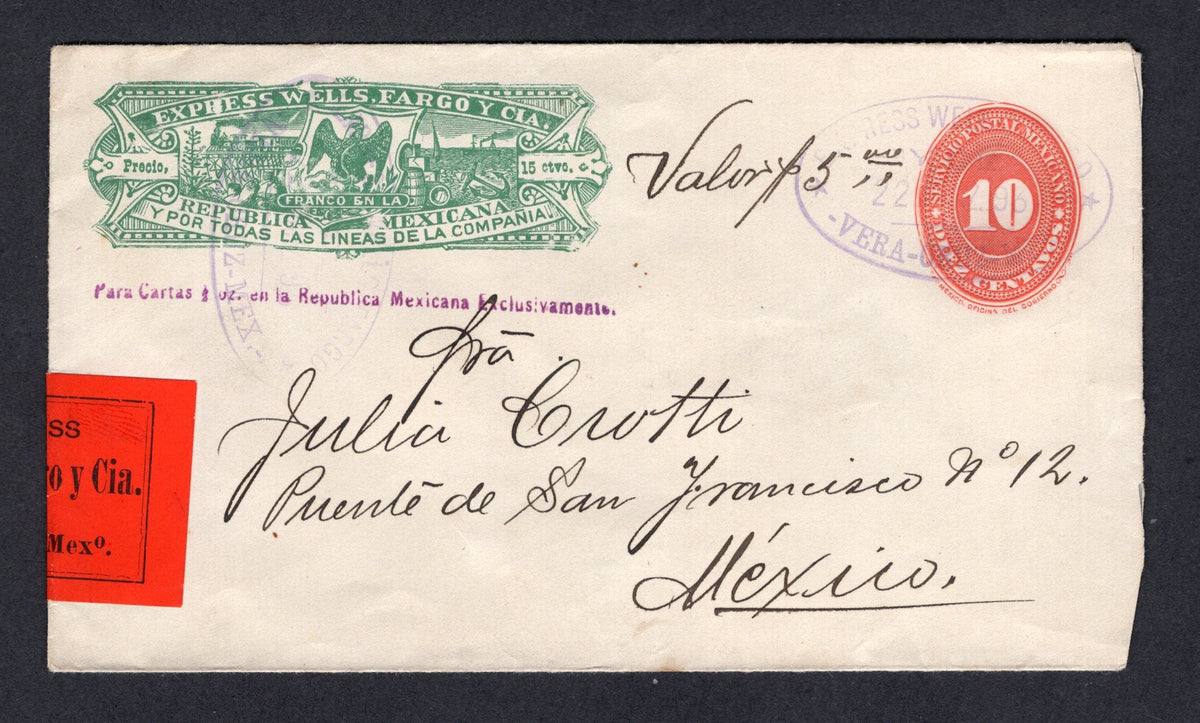 EXPRESS WELLS, FARGO Y CIA.
Precio, 15 ctvo.
FRANCO EN LA
REPUBLICA MEXICANA
Y POR TODAS LAS LINEAS DE LA COMPAÑIA.
Para Cartas ½ oz. en la Republica Mexicana Exclusivamente.
Valor $5
RESS WE
22
VERA-
SERVICIO POSTAL MEXICANO
10
DIEZ CENTAVOS
MEXICO, OFICINA DEL GOBIERNO
Z-MEX
Sra.
Julia Crotti
Puente de San Francisco No 12.
México.
SS
o y Cia.
Mexo.